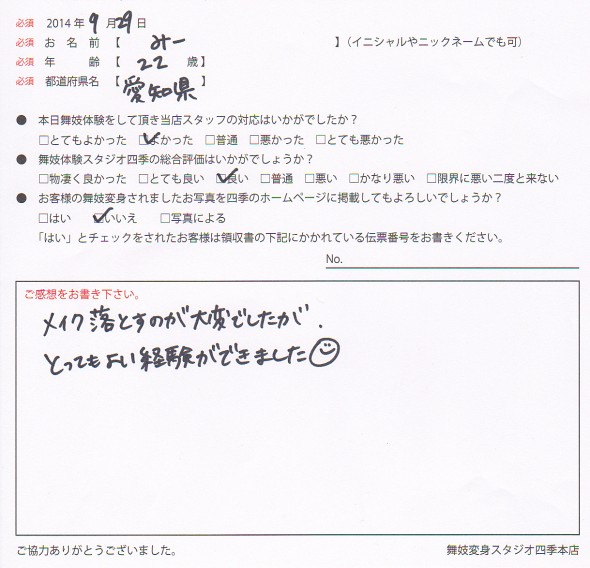 必須 2014年9月29日
必須 お 名 前 【 みー 】(イニシャルやニックネームでも可)
必須 年 齢 【 22 歳】
必須 都道府県名 【 愛知県 】
● 本日舞妓体験をして頂き当店スタッフの対応はいかがでしたか?
□とてもよかった ☑よかった □普通 □悪かった □とても悪かった
● 舞妓体験スタジオ四季の総合評価はいかがでしょうか?
□物凄く良かった □とても良い ☑良い □普通 □悪い □かなり悪い □限界に悪い二度と来ない
● お客様の舞妓変身されましたお写真を四季のホームページに掲載してもよろしいでしょうか?
□はい ☑いいえ □写真による
「はい」とチェックをされたお客様は領収書の下記にかかれている伝票番号をお書きください。
No.
ご感想をお書き下さい。
メイク落とすのが大変でしたが、
とってもよい経験ができました☺
ご協力ありがとうございました。 舞妓変身スタジオ四季本店